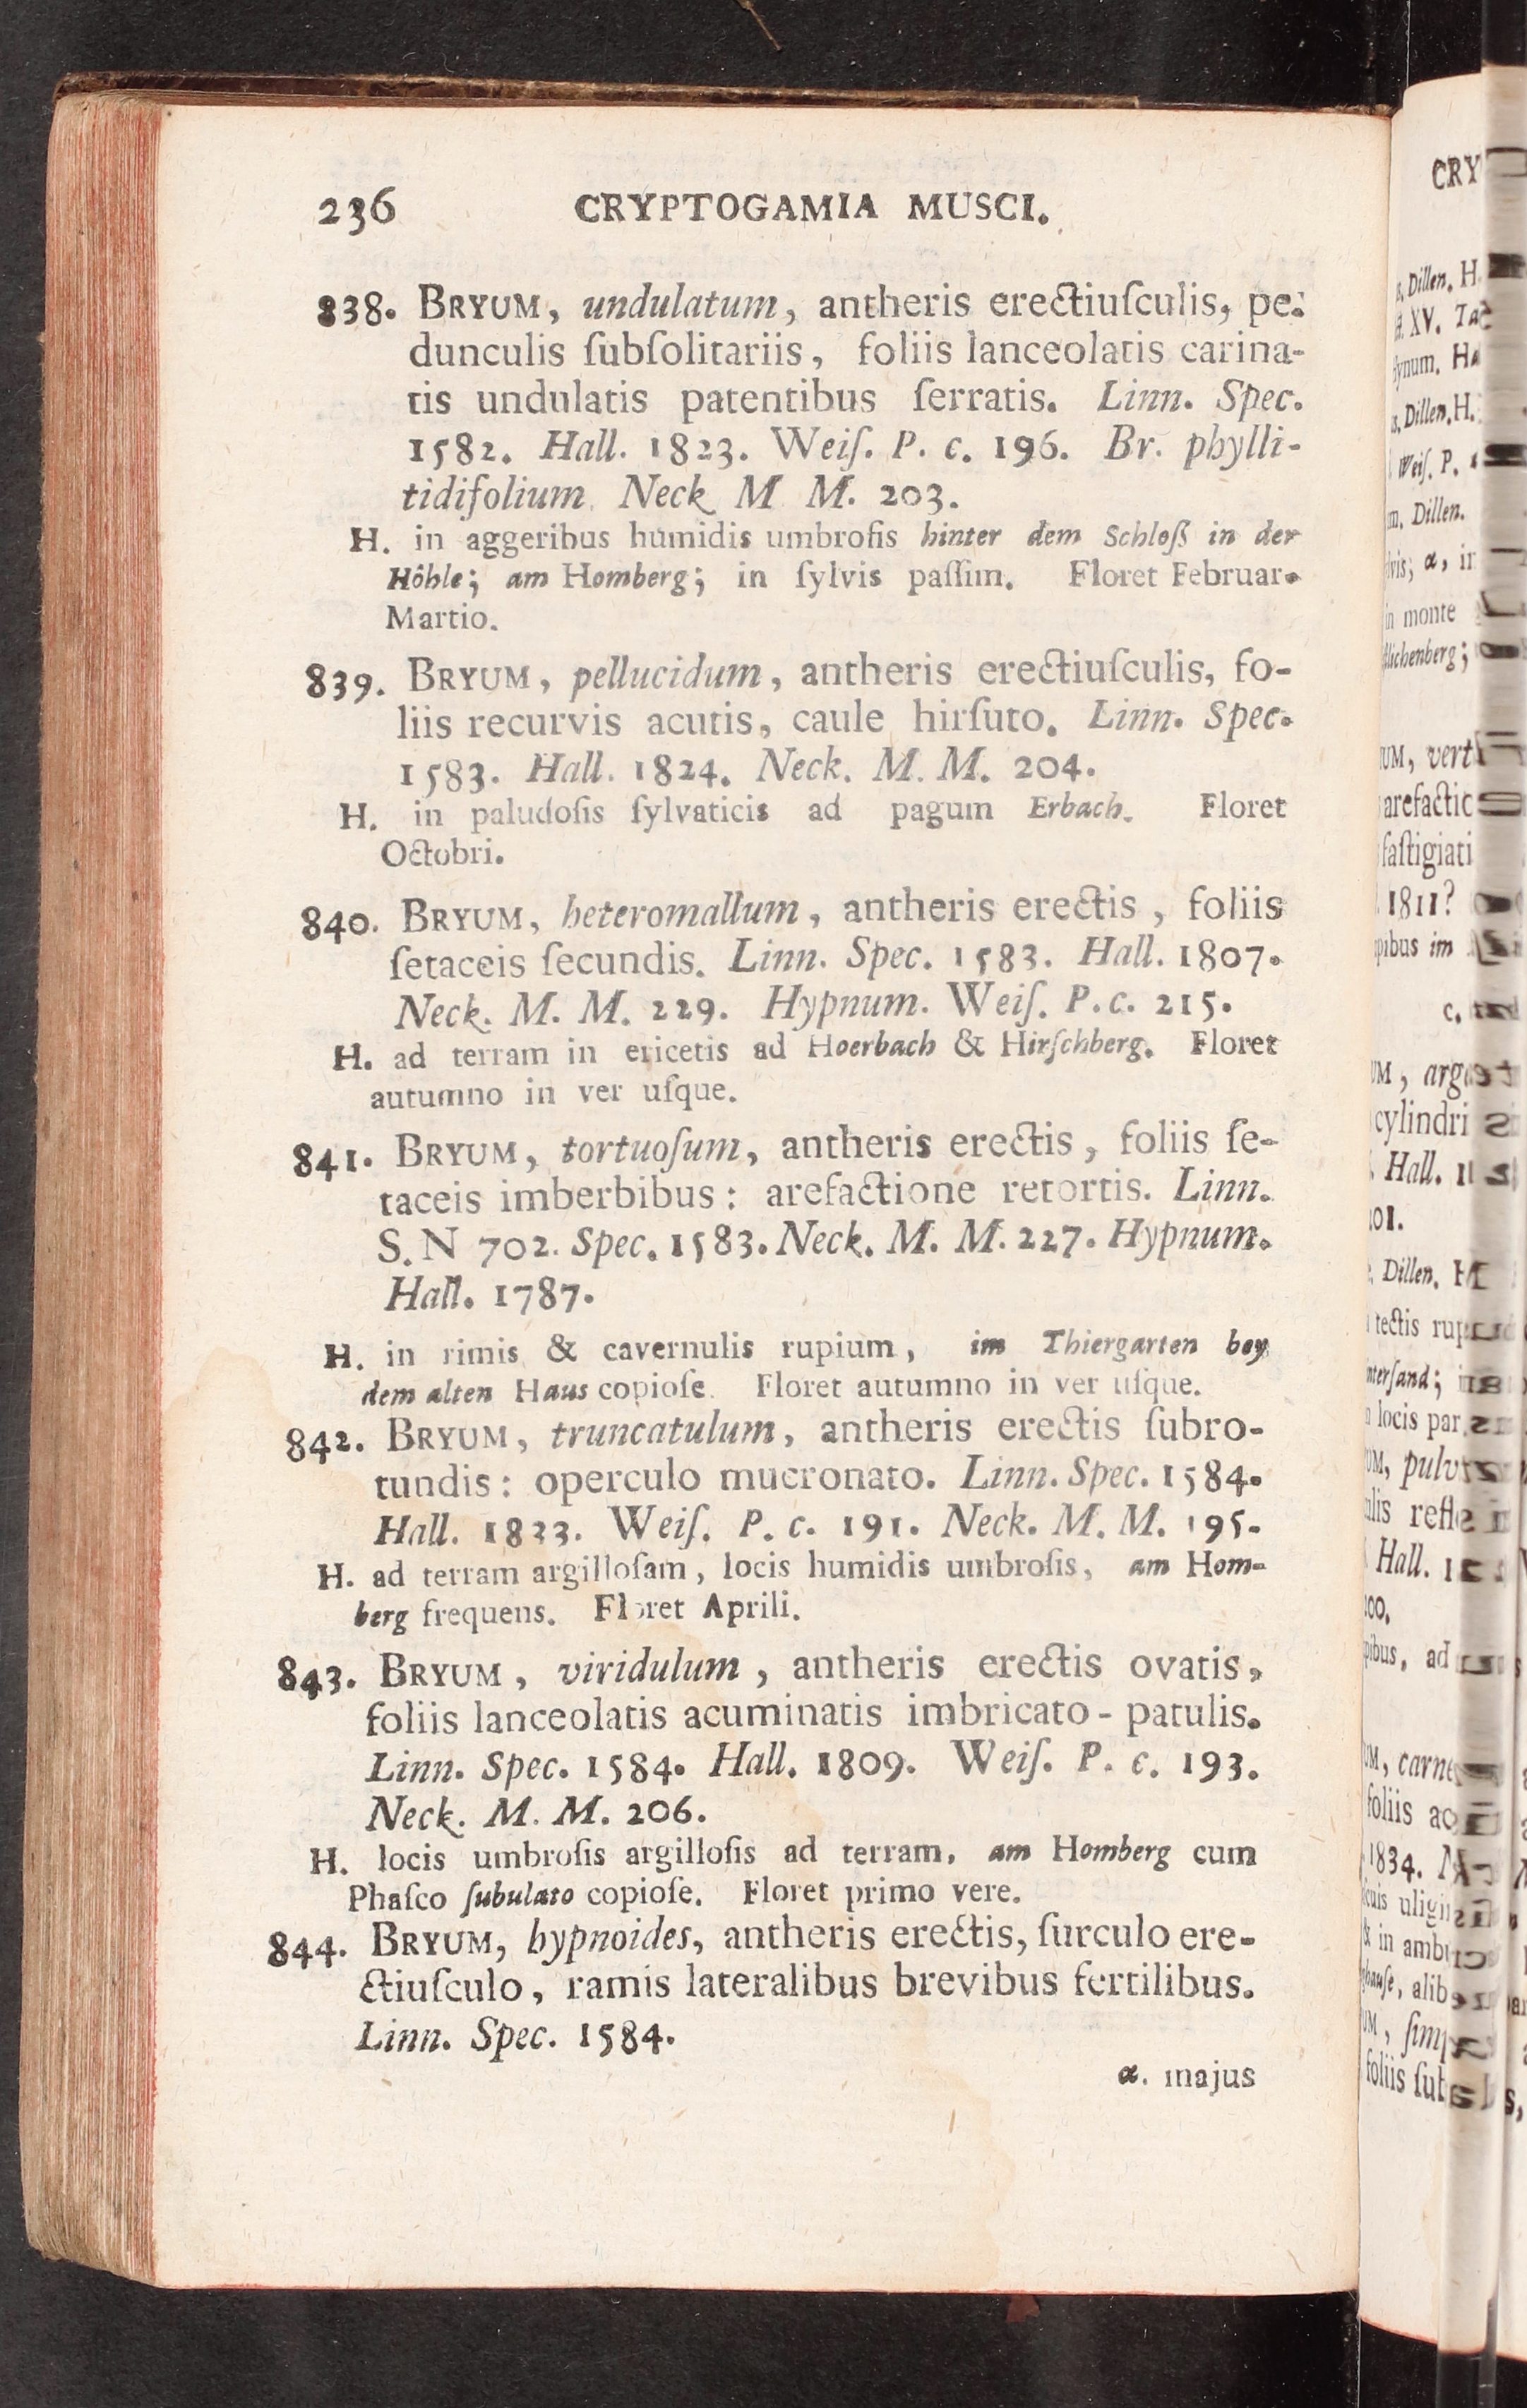 236 CRYPTOGAMIA MUSCI.
838. BRYUM, undulatum, antheris erectiuſculis, pe-
dunculis ſubſolitariis, foliis lanceolatis carina-
tis undulatis patentibus ſerratis. Linn. Spec.
1582. Hall. 1823. Weiſ. P. c. 196. Br. phylli-
tidifolium. Neck M M. 203.
H. in aggeribus humidis umbroſis hinter dem Schloß in der
Höhle; am Homberg; in ſylvis paſſim. Floret Februar.
Martio.
839. BRYUM, pellucidum, antheris erectiuſculis, fo-
liis recurvis acutis, caule hirſuto. Linn. Spec.
1583. Hall. 1824. Neck. M. M. 204.
H. in paludoſis ſylvaticis ad pagum Erbach. Floret
Octobri.
840. BRYUM, heteromallum, antheris erectis, foliis
ſetaceis ſecundis. Linn. Spec. 1583. Hall. 1807.
Neck. M. M. 229. Hypnum. Weiſ. P. c. 215.
H. ad terram in ericetis ad Hoerbach & Hirſchberg. Floret
autumno in ver uſque.
841. BRYUM, tortuoſum, antheris erectis, foliis ſe-
taceis imberbibus: arefactione retortis. Linn.
S. N 702. Spec. 1583. Neck. M. M. 227. Hypnum.
Hall. 1787.
H. in rimis & cavernulis rupium, im Thiergarten bey
dem alten Haus copioſe. Floret autumno in ver uſque.
842. BRYUM, truncatulum, antheris erectis ſubro-
tundis: operculo mucronato. Linn. Spec. 1584.
Hall. 1823. Weiſ. P. c. 191. Neck. M. M. 195.
H. ad terram argilloſam, locis humidis umbroſis, am Hom-
berg frequens. Floret Aprili.
843. BRYUM, viridulum, antheris erectis ovatis,
foliis lanceolatis acuminatis imbricato-patulis.
Linn. Spec. 1584. Hall. 1809. Weiſ. P. c. 193.
Neck. M. M. 206.
H. locis umbroſis argilloſis ad terram, am Homberg cum
Phaſco ſubulato copioſe. Floret primo vere.
844. BRYUM, hypnoides, antheris erectis, ſurculo ere-
ctiuſculo, ramis lateralibus brevibus fertilibus.
Linn. Spec. 1584.
α. majus